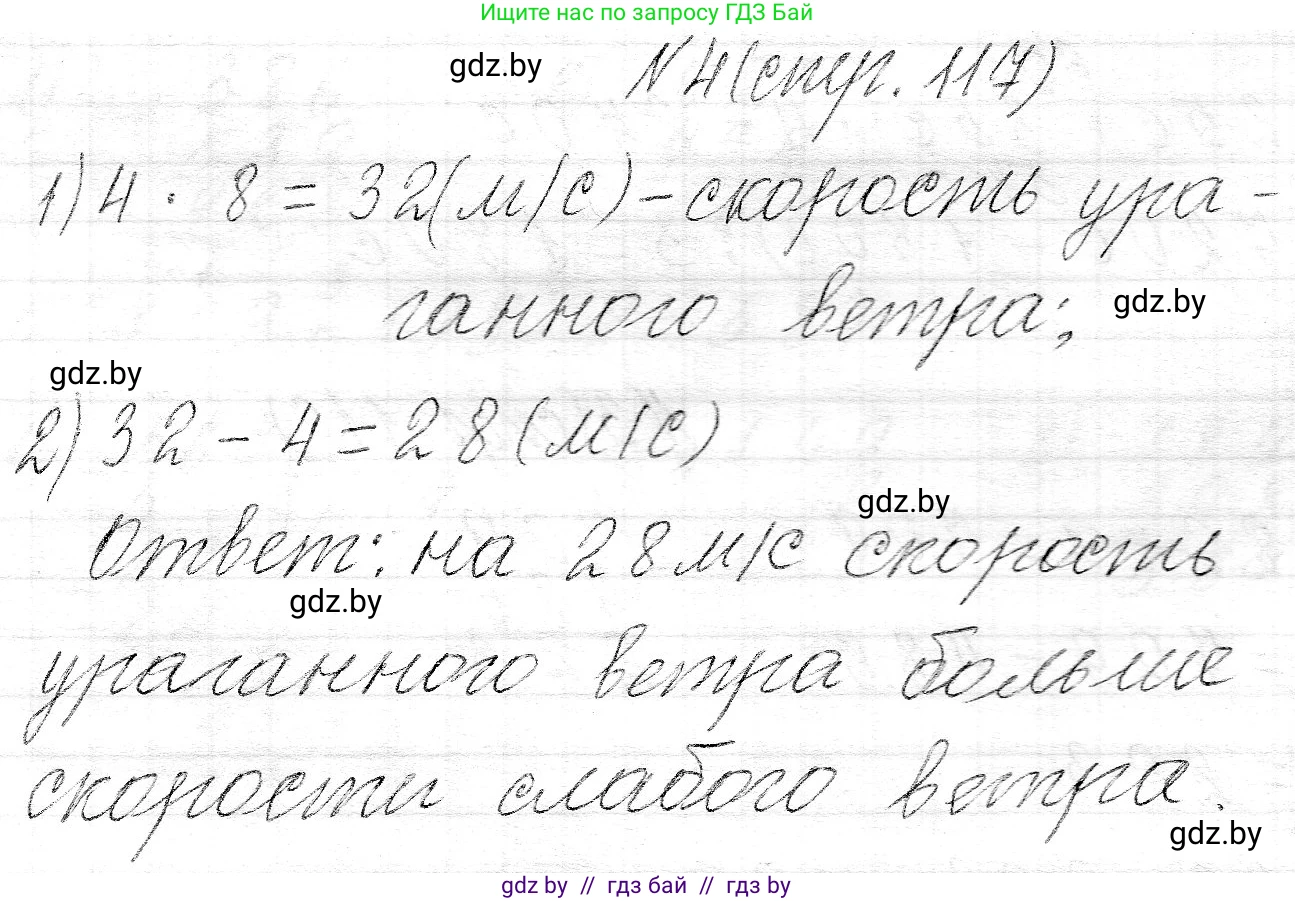 Ищите нас по запросу ГДЗ Бай
gdz.by
№4(стр. 117)
1) 4 · 8 = 32(м/с) - скорость ура -
ганного ветра;
gdz.by
gdz.by
2) 32 - 4 = 28 (м/с)
gdz.by
Ответ: на 28 м/с скорость
gdz.by
ураганного ветра больше
скорости слабого ветра.
gdz.by
gdz.by // гдз бай // гдз by